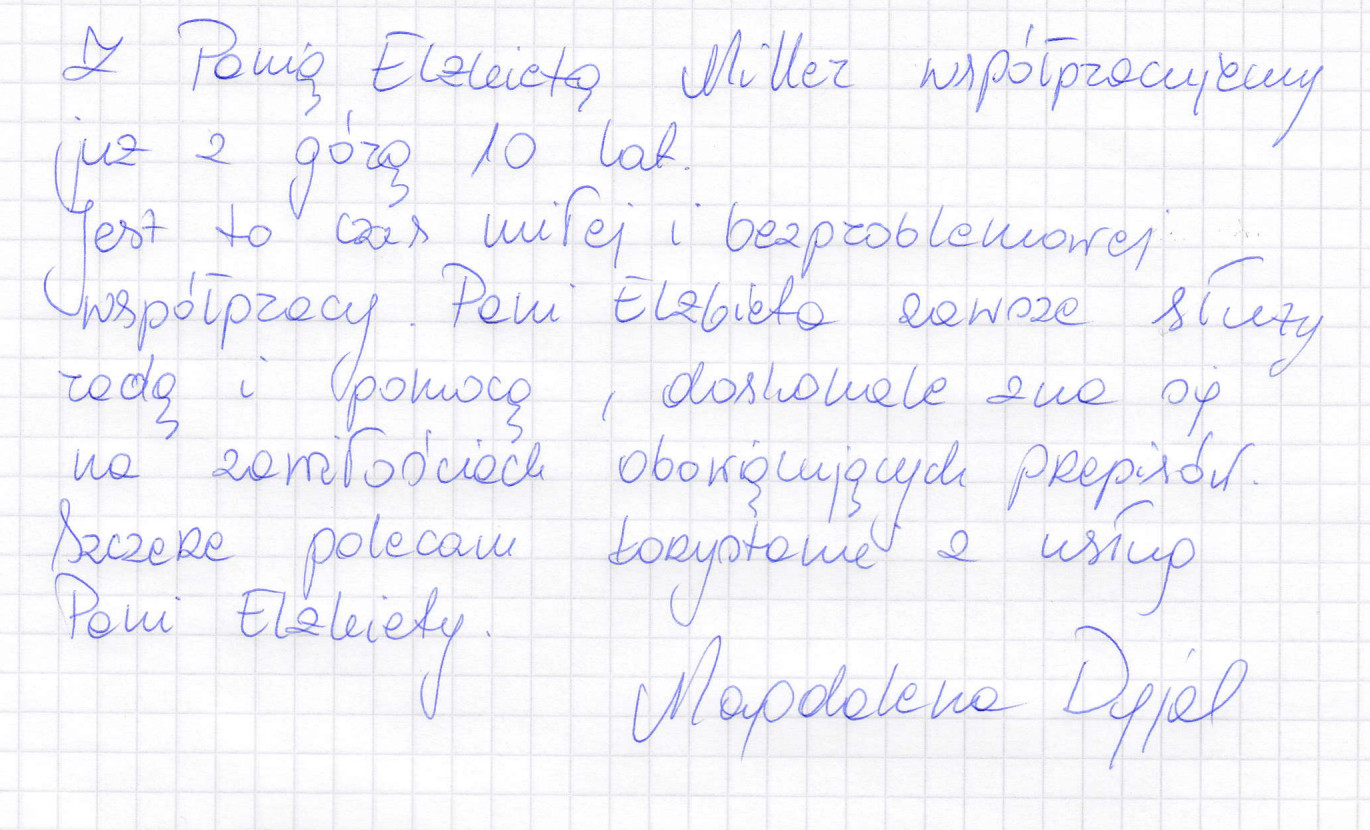 Z Panią Elżbietą Miller współpracujemy
już z górą 10 lat.
Jest to czas miłej i bezproblemowej
współpracy. Pani Elżbieta zawsze służy
radą i pomocą, doskonale zna się
na zawiłościach obowiązujących przepisów.
Szczerze polecam korzystanie z usług
Pani Elżbiety.
Magdalena